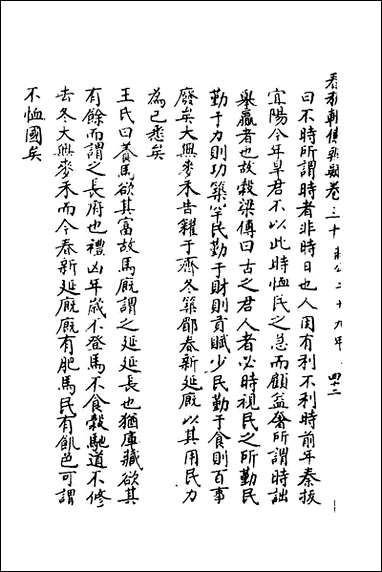 春秋輯傳辨疑卷 莊公二十九年
曰不時所謂時者非時日也人固有利不利時前年秦拔
宜陽今年旱君不以此時恤民之急而顧益奢所謂時詘
舉贏者也故穀梁傳曰古之君人者必時視民之所勤民
勤于力則功築罕民勤于財則貢賦少民勤于食則百事
廢矣大無麥禾告糴于齊冬築郿春新延廄以其用民力
為已悉矣
王氏曰養馬欲其富故馬廄謂之延延長也猶庫藏欲其
有餘而謂之長府也禮凶年歲不登馬不食穀馳道不修
去冬大無麥禾而今春新延廄廄有肥馬民有飢色可謂
不恤國矣